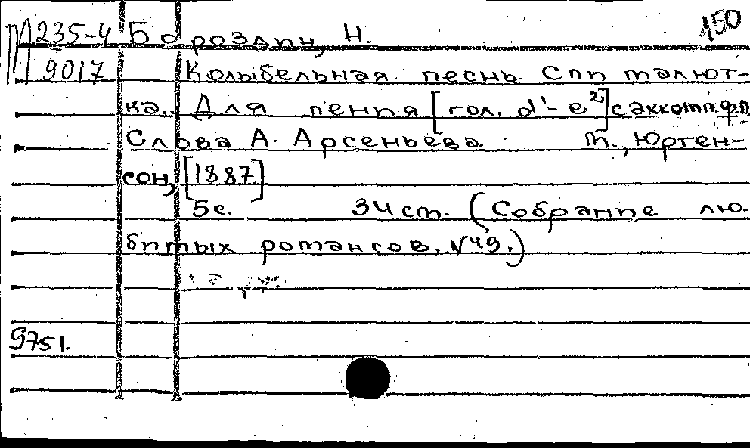 М 235-4 Бороздин, Н. 150
9017 Колыбельная песнь. Спи малют-
ка. Для пения [гол. d¹- e²] с аккомп. ф.п.
Слова А. Арсеньева. М., Юрген-
сон, [1887]
5с. 34 см. (Собрание лю-
бимых романсов, №49.)
9751.